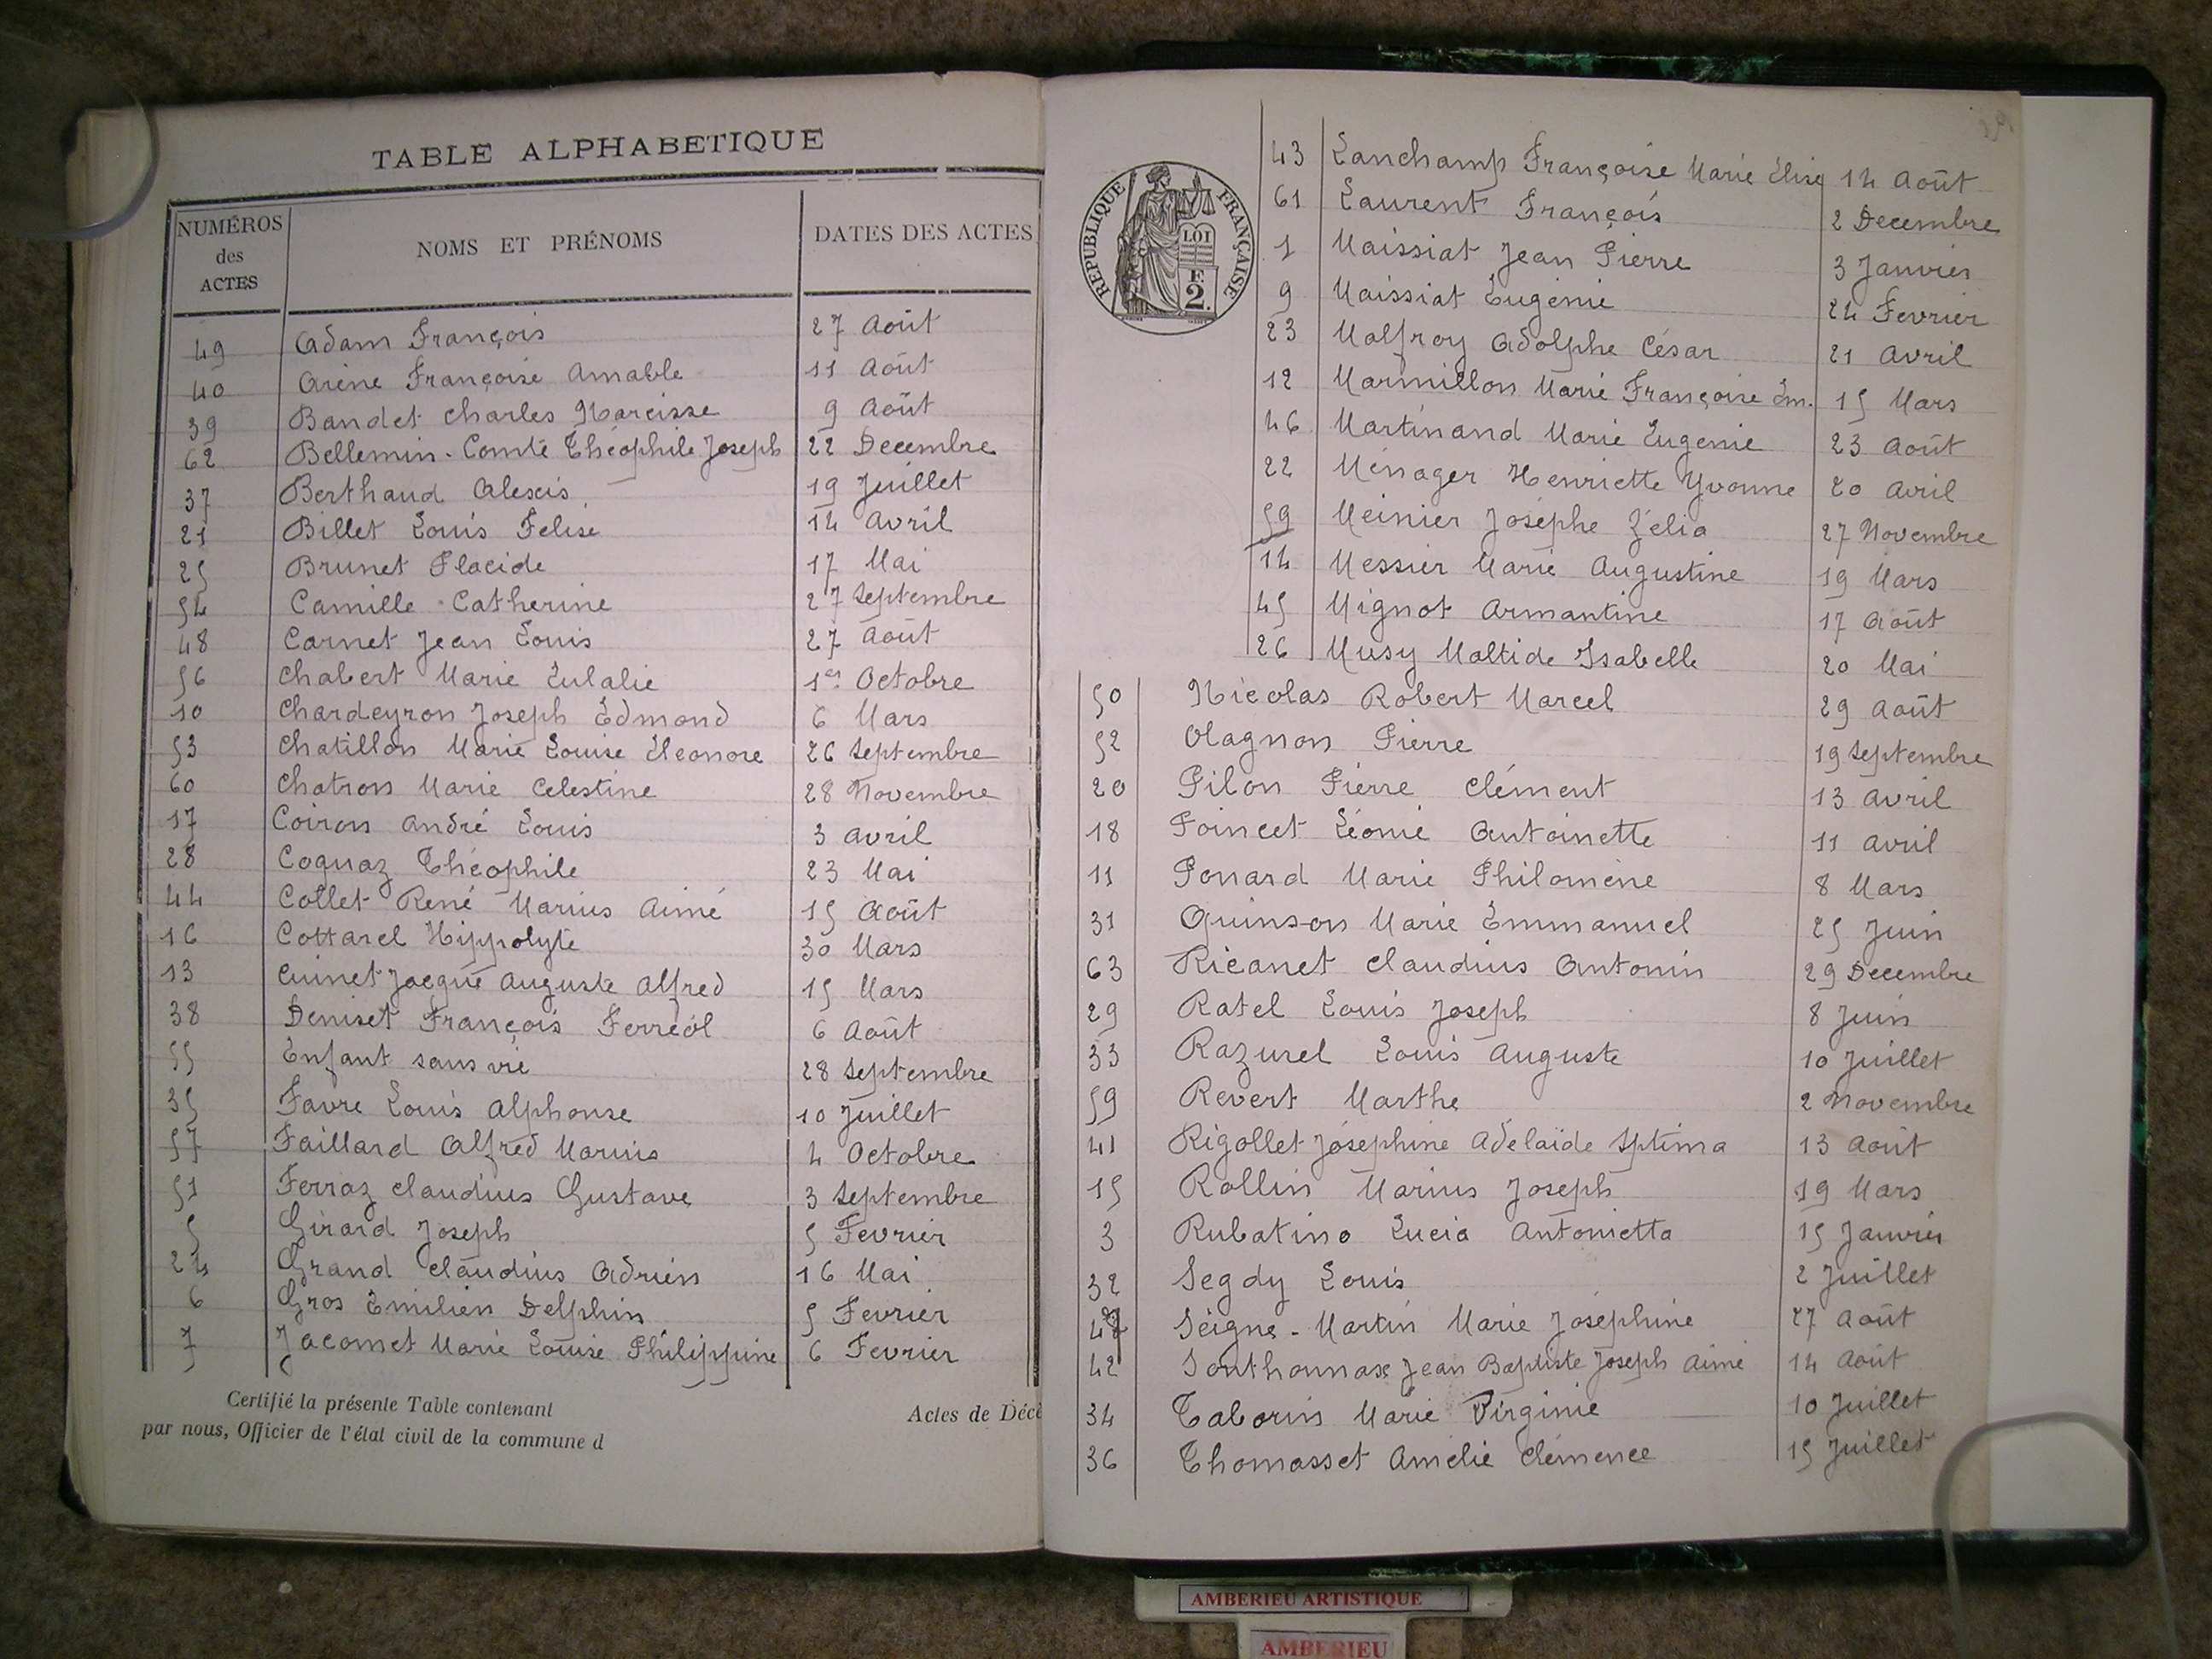 TABLE ALPHABETIQUE
NUMÉROS des ACTES NOMS ET PRÉNOMS DATES DES ACTES
49 Adam François 27 Août
40 Arène Françoise Amable 11 Août
39 Bandet Charles Narcisse 9 Août
62 Bellemin-Comte Théophile Joseph 22 Decembre
37 Berthaud Alexis 19 Juillet
21 Billet Louis Felise 14 Avril
25 Brunet Placide 17 Mai
54 Camille Catherine 27 Septembre
48 Carnet Jean Louis 27 Août
56 Chabert Marie Eulalie 1er Octobre
10 Chardeyron Joseph Edmond 6 Mars
53 Chatillon Marie Louise Eleonore 26 Septembre
60 Chatron Marie Celestine 28 Novembre
17 Coiron André Louis 3 Avril
28 Coquaz Théophile 23 Mai
44 Collet René Marius Aimé 15 Août
16 Cottarel Hippolyte 30 Mars
13 Cuinet Jacque Auguste Alfred 15 Mars
38 Deniset François Ferréol 6 Août
55 Enfant sans vie 28 Septembre
35 Favre Louis Alphonse 10 Juillet
57 Faillard Alfred Marius 4 Octobre
51 Ferraz Claudius Gustave 3 Septembre
5 Girard Joseph 5 Fevrier
24 Grand Claudius Adrien 16 Mai
6 Gros Emilien Delphin 5 Fevrier
7 Jacomet Marie Louise Philippine 6 Fevrier
Certifié la présente Table contenant Actes de Décè
par nous, Officier de l'état civil de la commune d
REPUBLIQUE FRANÇAISE
LOI
E
2
43 Lanchamp Françoise Marie Elise 14 Août
61 Laurent François 2 Decembre
1 Maissiat Jean Pierre 3 Janvier
9 Maissiat Eugénie 24 Fevrier
23 Malfroy Adolphe César 21 Avril
12 Marmillon Marie Françoise Em. 15 Mars
46 Martinand Marie Eugenie 23 Août
22 Ménager Henriette Yvonne 20 Avril
59 Meinier Josephe Zelia 27 Novembre
14 Messier Marie Augustine 19 Mars
45 Mignot Armantine 17 Août
26 Musy Maltide Isabelle 20 Mai
50 Nicolas Robert Marcel 29 Août
52 Olagnon Pierre 19 Septembre
20 Pilon Pierre Clément 13 Avril
18 Poincet Léonie Antoinette 11 Avril
11 Ponard Marie Philomène 8 Mars
31 Quinson Marie Emmanuel 25 Juin
63 Ricanet Claudius Antonin 29 Decembre
29 Ratel Louis Joseph 8 Juin
33 Razurel Louis Auguste 10 Juillet
59 Revert Marthe 2 Novembre
41 Rigollet Joséphine Adelaïde Sptima 13 Août
15 Rollin Marius Joseph 19 Mars
3 Rubatino Lucia Antonietta 15 Janvier
32 Segdy Louis 2 Juillet
47 Seigne-Martin Marie Joséphine 27 Août
42 Sonthonnax Jean Baptiste Joseph Aimé 14 Août
34 Taborin Marie Virginie 10 Juillet
36 Thomasset Amelie Clémence 15 Juillet
AMBERIEU ARTISTIQUE
AMBERIEU